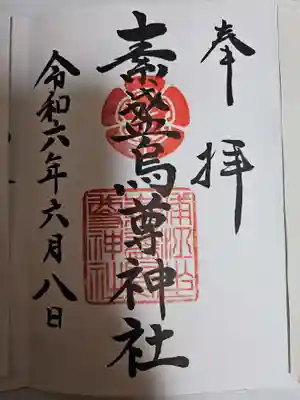 奉拝
素盞烏尊神社
令和六年六月八日